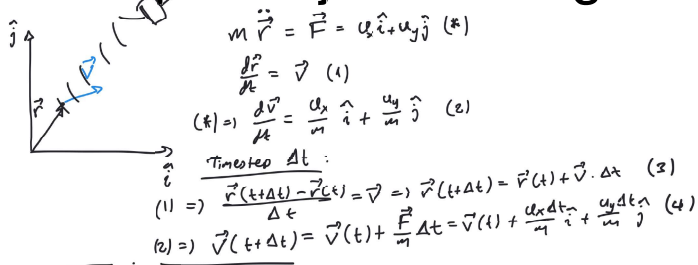 ĵ
m r⃗̈ = F⃗ = uₓî+u_yĵ (*)
V⃗
dr⃗/dt = V⃗ (1)
r⃗
(*)=) dv⃗/dt = uₓ/m î + u_y/m ĵ (2)
î
Timestep Δt :
(1) =) (r⃗(t+Δt) – r⃗(t))/Δt = V⃗ =) r⃗(t+Δt) = r⃗(t) + V⃗. Δt (3)
(2)=) V⃗(t+Δt) = V⃗(t) + F⃗/m Δt = V⃗(t) + uₓΔt/m î + u_yΔt/m ĵ (4)